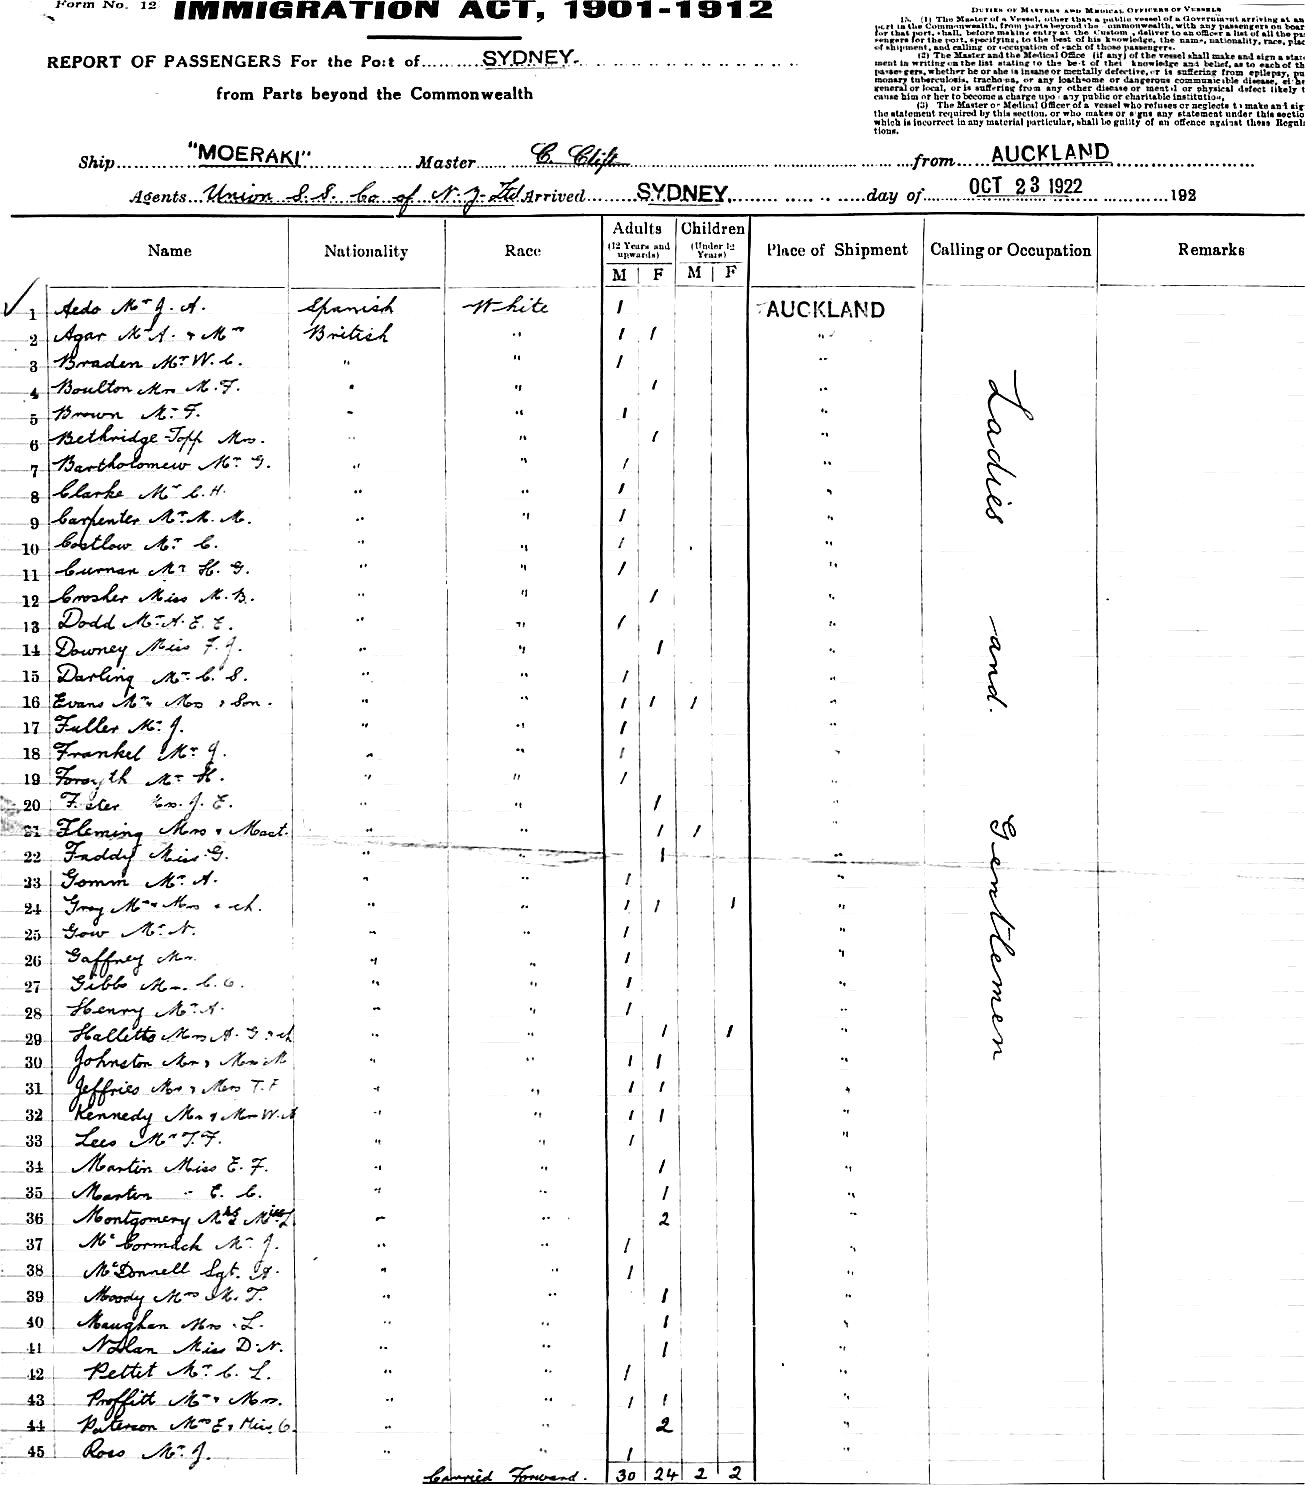 Form No. 12
IMMIGRATION ACT, 1901-1912
REPORT OF PASSENGERS For the Port of SYDNEY.
from Parts beyond the Commonwealth
DUTIES OF MASTERS AND MEDICAL OFFICERS OF VESSELS
15. (1) The Master of a Vessel, other than a public vessel of a Government arriving at an
port in the Commonwealth, from parts beyond the Commonwealth, with any passengers on boar
for that port, shall, before making entry at the Custom, deliver to an officer a list of all the pa
sengers for the port, specifying, to the best of his knowledge, the name, nationality, race, plac
of shipment, and calling or occupation of each of those passengers.
(2) The Master and the Medical Office (if any) of the vessel shall make and sign a state
ment in writing on the list stating to the best of their knowledge and belief, as to each of th
passengers, whether he or she is insane or mentally defective, or is suffering from epilepsy, pu
monary tuberculosis, trachoma, or any loathsome or dangerous communicable disease, eithe
general or local, or is suffering from any other disease or mental or physical defect likely t
cause him or her to become a charge upon any public or charitable institution.
(3) The Master or Medical Officer of a vessel who refuses or neglects to make and sig
the statement required by this section, or who makes or signs any statement under this sectio
which is incorrect in any material particular, shall be guilty of an offence against these Regula
tions.
Ship "MOERAKI" Master C. Clift from AUCKLAND
Agents Union S.S. Co of N.Z. Ltd Arrived SYDNEY. day of OCT 23 1922 192
Name Nationality Race Adults (12 Years and upwards) M F Children (Under 12 Years) M F Place of Shipment Calling or Occupation Remarks
1 Aedo Mr J. A. Spanish White 1 AUCKLAND
2 Agar Mr A. & Mrs British " 1 1 "
3 Braden Mr W. C. " " 1 "
4 Boulton Mrs M. F. " " 1 "
5 Brown Mr F. " " 1 "
6 Bethridge-Topp Mrs. " " 1 "
7 Bartholomew Mr G. " " 1 "
8 Clarke Mr C. H. " " 1 "
9 Carpenter Mr M. M. " " 1 "
10 Costlow Mr C. " " 1 "
11 Curnan Mr H. G. " " 1 "
12 Crosher Miss M. B. " " 1 "
13 Dodd Mr A. E. E. " " 1 "
14 Downey Miss F. J. " " 1 "
15 Darling Mr C. S. " " 1 "
16 Evans Mr & Mrs & Son. " " 1 1 1 "
17 Fuller Mr J. " " 1 "
18 Frankel Mr J. " " 1 "
19 Forsyth Mr H. " " 1 "
20 Mrs. J. E. " " 1 "
21 Fleming Mrs & Mast. " " 1 1 "
22 Faddy Miss G. " " 1 "
23 Gomm Mr A. " " 1 "
24 Gray Mr & Mrs & ch. " " 1 1 1 "
25 Gow Mr N. " " 1 "
26 Gaffney Mr. " " 1 "
27 Gibbs Mr. C. C. " " 1 "
28 Henry Mr A. " " 1 "
29 Halletts Mrs A. G & ch " " 1 1 "
30 Johnston Mr & Mrs M " " 1 1 "
31 Jeffries Mr & Mrs T. F " " 1 1 "
32 Kennedy Mr & Mrs W. A " " 1 1 "
33 Lees Mr T. F. " " 1 "
34 Martin Miss E. F. " " 1 "
35 Martin " E. C. " " 1 "
36 Montgomery Mrs & Miss L " " 2 "
37 McCormack Mr J. " " 1 "
38 McDonnell Sgt. A. " " 1 "
39 Moody Mrs M. T. " " 1 "
40 Maughan Mrs L. " " 1 "
41 Nolan Miss D. N. " " 1 "
42 Pettet Mr C. L. " " 1 "
43 Proffitt Mr & Mrs. " " 1 1 "
44 Paterson Mrs E & Miss C. " " 2 "
45 Ross Mr J. " " 1 "
Ladies and Gentlemen
Carried Forward. 30 24 2 2